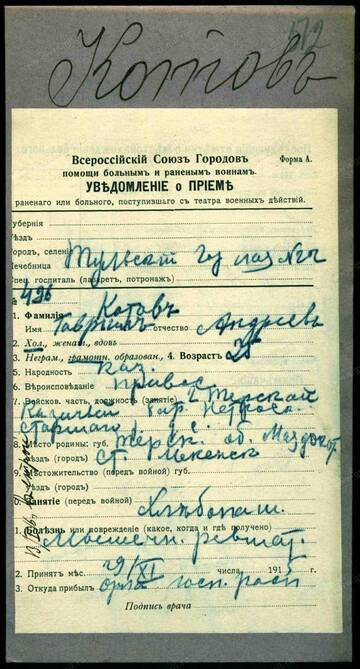 572
Котовъ
Всероссійскій Союзъ Городовъ
Форма А.
помощи больнымъ и раненымъ воинамъ.
УВѢДОМЛЕНІЕ о ПРІЕМѢ
раненаго или больного, поступившаго съ театра военныхъ дѣйствій.
Губернія
Уѣздъ
Городъ, селеніе
Лечебница Тульскій гор лаз №
(спец. госпиталь (лазаретъ, патронажъ)
№ 426
1. Фамилія Котовъ
Имя Гавріилъ отчество Андреевъ
2. Хол., женат., вдовъ
3. Неграм., грамотн. образован., 4. Возрастъ 25
5. Народность каз.
6. Вѣроисповѣданіе правос
7. Войсков. часть, должность (занятіе) 2 Терской
Казачьей
старшаго
8. Мѣсто родины: губ. Терск. об. Маздок от.
уѣздъ (городъ) ст.
9. Мѣстожительство (передъ войной) губ.
уѣздъ (городъ)
Занятіе (передъ войной)
Хлѣбопаш.
Болѣзнь или поврежденіе (какое, когда и гдѣ получено)
Мышечн. ревмат.
2. Принятъ мѣс. 29/XI числа 191 г.
3. Откуда прибылъ госп. расп
Подпись врача